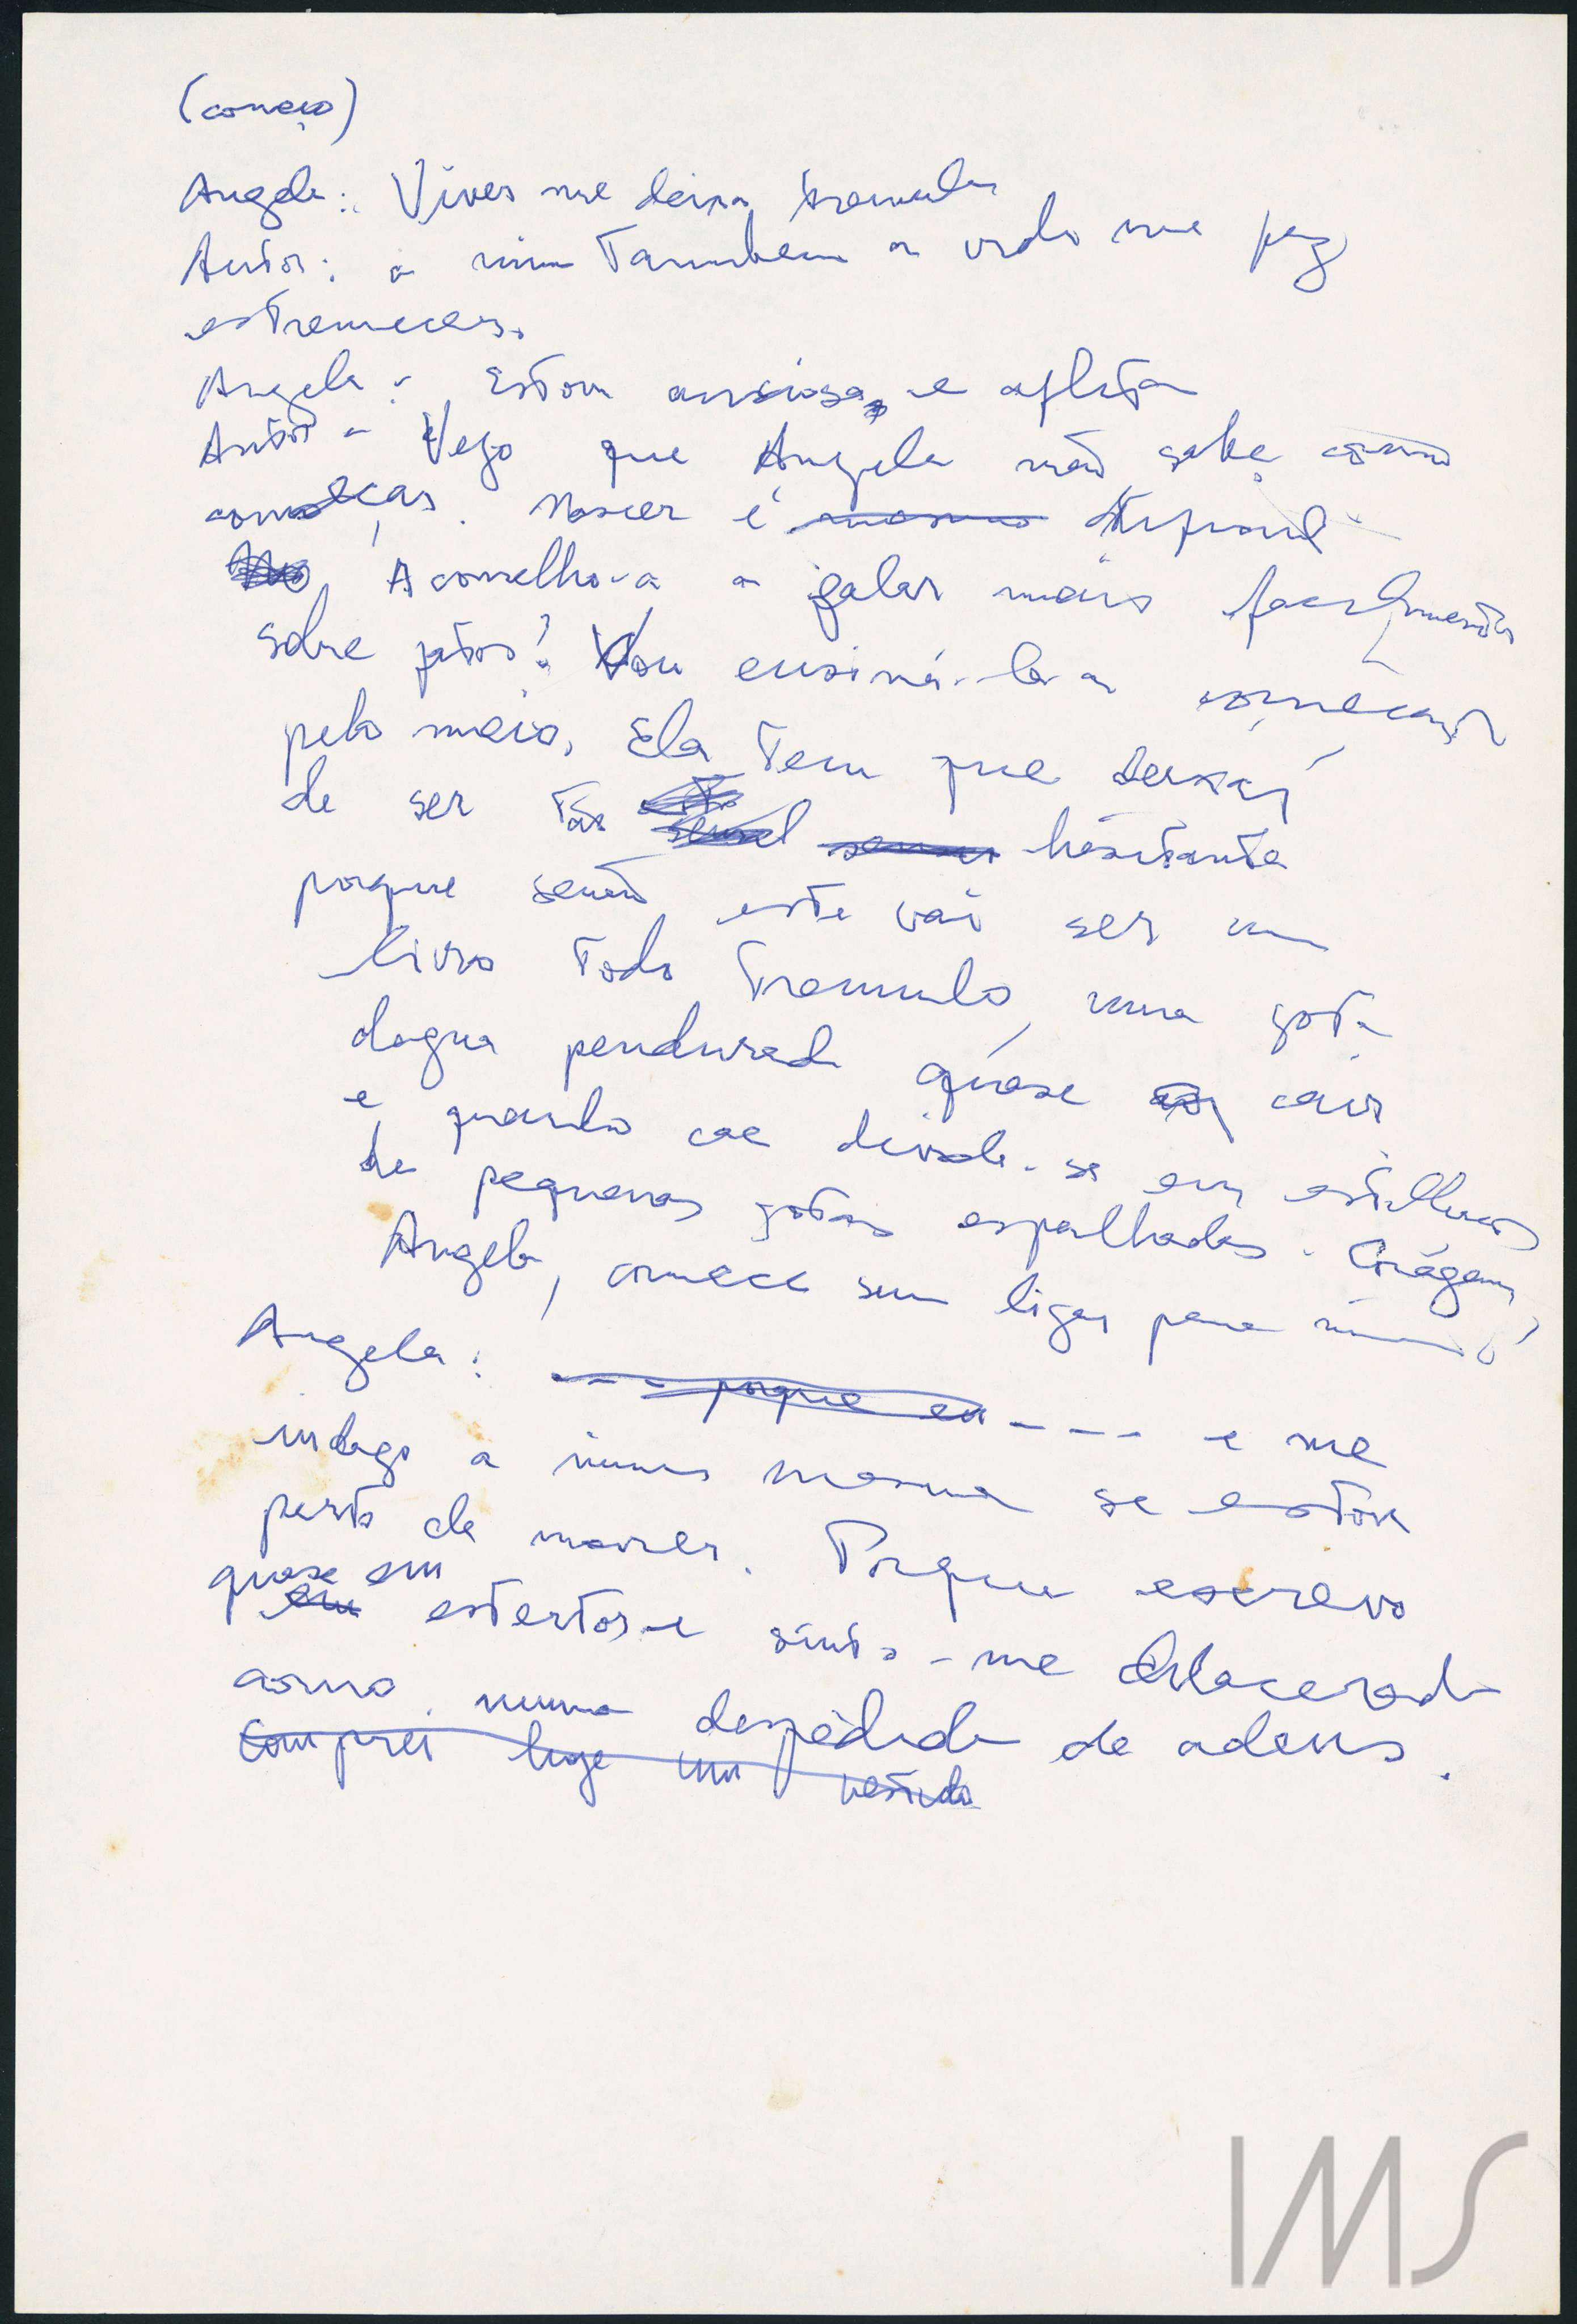 (começo)
Angela: Viver me deixa tremula
Autor: a mim Tambem a vida me faz
estremecer.
Angela: Estou ansiosa e aflita
Autor - Vejo que Angela não sabe como
começar. Nascer é mesmo dificil.
Aconselho-a a falar mais facilmente
sobre fatos! Vou ensiná-la a começar
pelo meio. Ela tem que deixar
de ser tão hesitante
porque senão este vai ser um
livro todo tremulo, uma gota
dagua pendurada quase a cair
e quando cae divide-se em estilhaços
de pequenas gotas espalhadas. Corágem,
Angela, comece sem ligar para nada!
Angela: --- porque eu ---- e me
indago a mim mesma se estou
perto de morrer. Porque escrevo
quase em
em estertor e sinto-me dilacerada
como numa despedida de adeus.
Comprei hoje um vestido
IMS